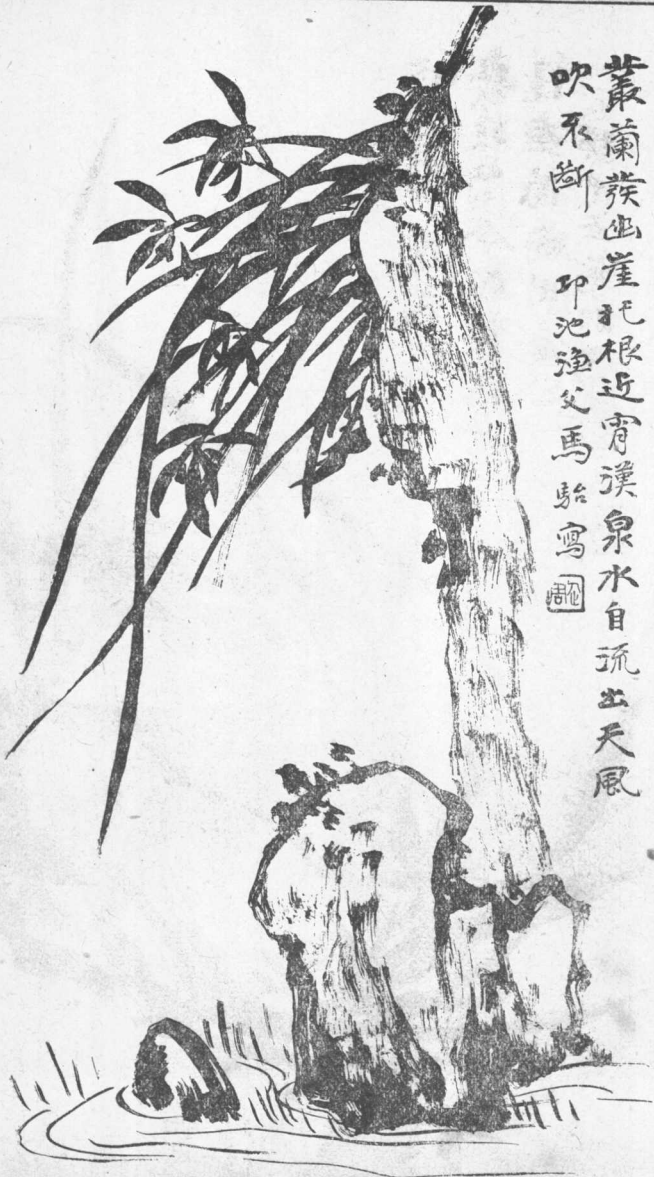 叢蘭發幽崖託根近宵漢泉水自流出天風
吹不斷
邛池漁父馬駘寫